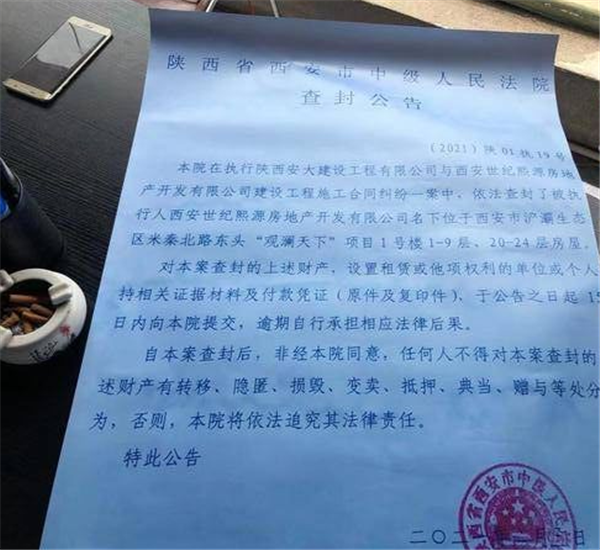 陕西省西安市中级人民法院
查封公告
(2021)陕01执19号
本院在执行陕西安大建设工程有限公司与西安世纪熙源房地
产开发有限公司建设工程施工合同纠纷一案中、依法查封了被执
行人西安世纪熙源房地产开发有限公司名下位于西安市浐灞生态
区米秦北路东头“观澜天下”项目1号楼1-9层、20-24层房屋。
对本案查封的上述财产，设置租赁或他项权利的单位或个人
持相关证据材料及付款凭证（原件及复印件）、于公告之日起15
日内向本院提交，逾期自行承担相应法律后果。
自本案查封后，非经本院同意，任何人不得对本案查封的
述财产有转移、隐匿、损毁、变卖、抵押、典当、赠与等处分
为，否则，本院将依法追究其法律责任。
特此公告
陕西省西安市中级人民
二〇二 年 月 日